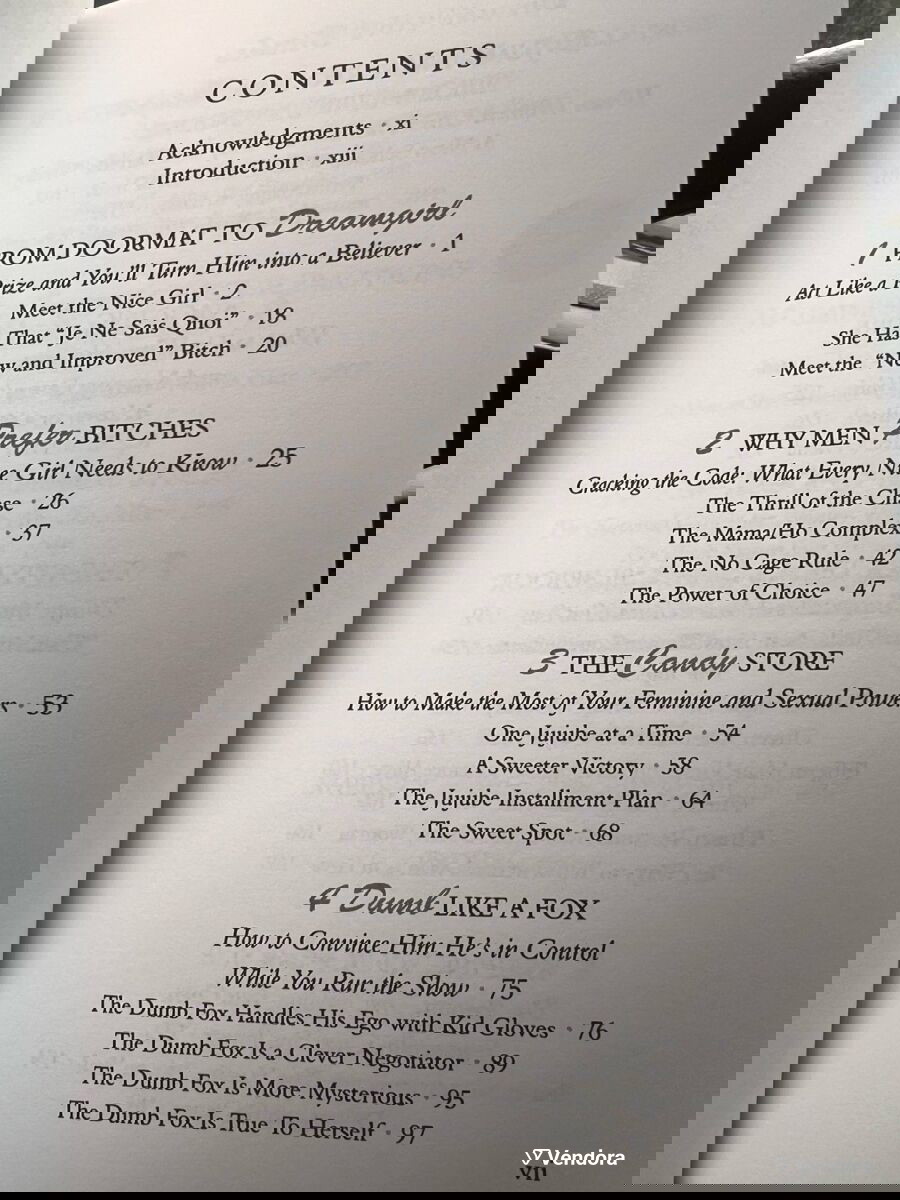 CONTENTS
Acknowledgments • xi
Introduction • xiii
1 FROM DOORMAT TO Dreamgirl
Act Like a Prize and You'll Turn Him into a Believer • 1
Meet the Nice Girl • 2
She Has That "Je Ne Sais Quoi" • 18
Meet the "New and Improved" Bitch • 20
2 WHY MEN Prefer BITCHES
Cracking the Code: What Every Nice Girl Needs to Know • 25
The Thrill of the Chase • 26
The Mama/Ho Complex • 37
The No Cage Rule • 42
The Power of Choice • 47
3 THE Candy STORE
How to Make the Most of Your Feminine and Sexual Power • 53
One Jujube at a Time • 54
A Sweeter Victory • 58
The Jujube Installment Plan • 64
The Sweet Spot • 68
4 Dumb LIKE A FOX
How to Convince Him He's in Control
While You Run the Show • 75
The Dumb Fox Handles His Ego with Kid Gloves • 76
The Dumb Fox Is a Clever Negotiator • 89
The Dumb Fox Is More Mysterious • 95
The Dumb Fox Is True To Herself • 97
vii
Vendora